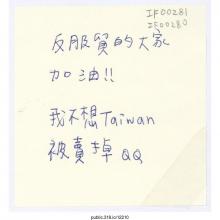 IF00281
IF00280
反服貿的大家
加油!!
我不想Taiwan
被賣掉 QQ
public.318.io/12210